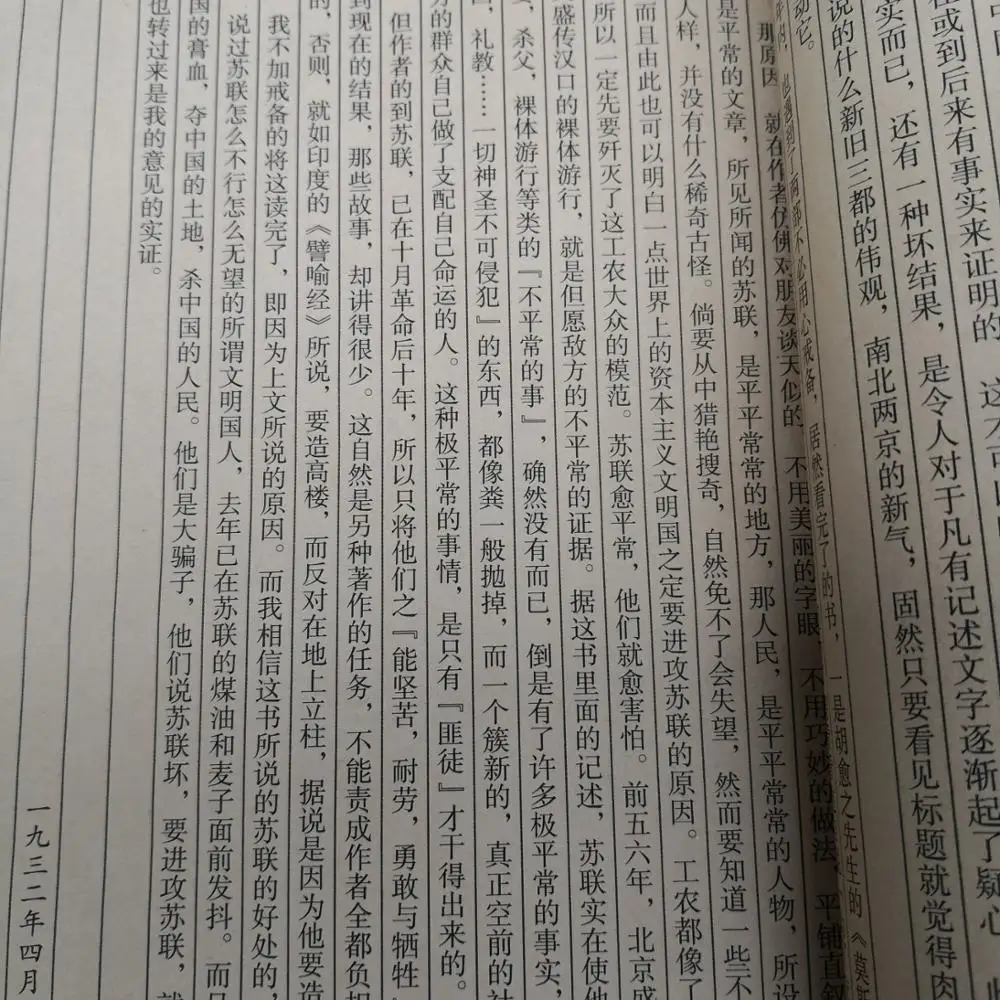 或到后来有事实来证明的
实而已，还有一种坏结果，是令人对于凡有记述文字逐渐起了疑心，
说的什么新旧三都的伟观，南北两京的新气，固然只要看见标题就觉得肉
动它。
但遇到了两部不必用心戒备，居然看完了的书，一是胡愈之先生的《莫斯
那原因，就在作者仿佛对朋友谈天似的，不用美丽的字眼，不用巧妙的做法，平铺直叙
是平常的文章，所见所闻的苏联，是平平常常的地方，那人民，是平平常常的人物，所设
人样，并没有什么稀奇古怪。倘要从中猎艳搜奇，自然免不了会失望，然而要知道一些不
而且由此也可以明白一点世界上的资本主义文明国之定要进攻苏联的原因。工农都像了
所以一定先要歼灭了这工农大众的模范。苏联愈平常，他们就愈害怕。前五六年，北京盛
盛传汉口的裸体游行，就是但愿敌方的不平常的证据。据这书里面的记述，苏联实在使他
，杀父，裸体游行等类的『不平常的事』，确然没有而已，倒是有了许多极平常的事实，
，礼教……一切神圣不可侵犯』的东西，都像粪一般抛掉，而一个簇新的，真正空前的社
的群众自己做了支配自己命运的人。这种极平常的事情，是只有『匪徒』才干得出来的。
但作者的到苏联，已在十月革命后十年，所以只将他们之『能坚苦，耐劳，勇敢与牺牲』
到现在的结果，那些故事，却讲得很少。这自然是另种著作的任务，不能责成作者全都负担
的，否则，就如印度的《譬喻经》所说，要造高楼，而反对在地上立柱，据说是因为他要造
我不加戒备的将这读完了，即因为上文所说的原因。而我相信这书所说的苏联的好处的，
说过苏联怎么不行怎么无望的所谓文明国人，去年已在苏联的煤油和麦子面前发抖。而
国的膏血，夺中国的土地，杀中国的人民。他们是大骗子，他们说苏联坏，要进攻苏联，就
也转过来是我的意见的实证。
一九三二年四月